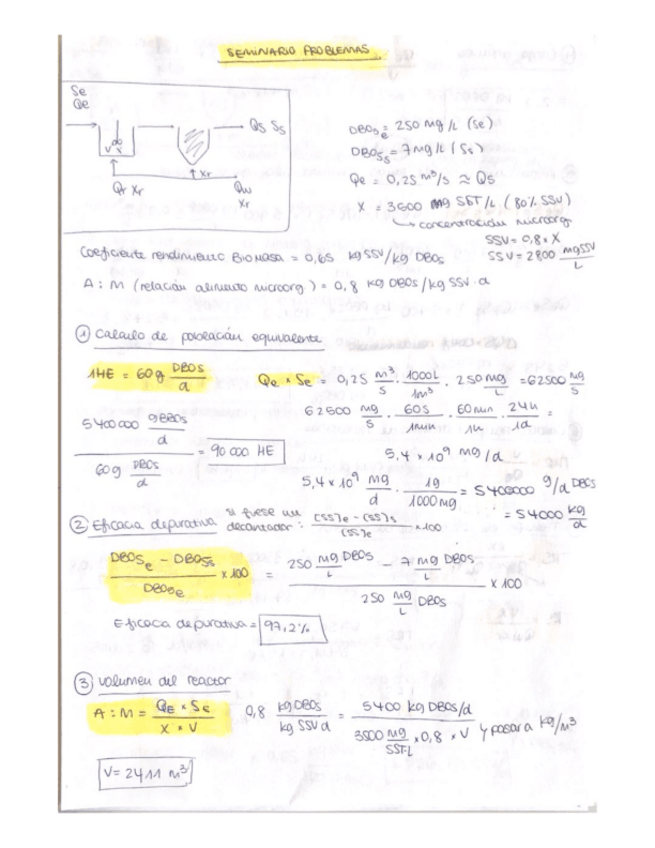 SEMINARIO PROBLEMAS
Se
Qe
Qs Ss
V X
Xr
Qr Xr
Qw
Xr
DBO5e = 250 mg/L (Se)
DBO5s = 7 mg/L (Ss)
Qe = 0,25 m³/s ≈ Qs
X = 3500 mg SST/L (80% SSV)
↳ concentración microorg
SSV = 0,8 · X
SSV = 2800 mg SSV/L
Coeficiente rendimiento Biomasa = 0,65 kg SSV/kg DBO5
A : M (relación alimento microorg) = 0,8 kg DBO5/kg SSV · d
① Calculo de población equivalente
1HE = 60g DBO5/d
Qe × Se = 0,25 m³/s · 1000L/1m³ · 250 mg/L = 62500 mg/s
62500 mg/s · 60s/1min · 60min/1h · 24h/1d =
5,4 × 10⁹ mg/d
5400000 gDBO5/d / 60g DBO5/d = 90 000 HE
5,4 × 10⁹ mg/d · 1g/1000mg = 5400000 g/d DBO5
= 54000 kg/d
② Eficacia depurativa si fuese un decantador: [SS]e - [SS]s / [SS]e × 100
DBO5e - DBO5s / DBO5e × 100 = 250 mg/L DBO5 - 7 mg/L DBO5 / 250 mg/L DBO5 × 100
Eficacia depurativa = 97,2%
③ Volumen del reactor
A : M = QE × Se / X × V 0,8 kg DBO5/kg SSV d = 5400 kg DBO5/d / 3500 mg/SST·L × 0,8 × V y pasar a kg/m³
V = 2411 m³